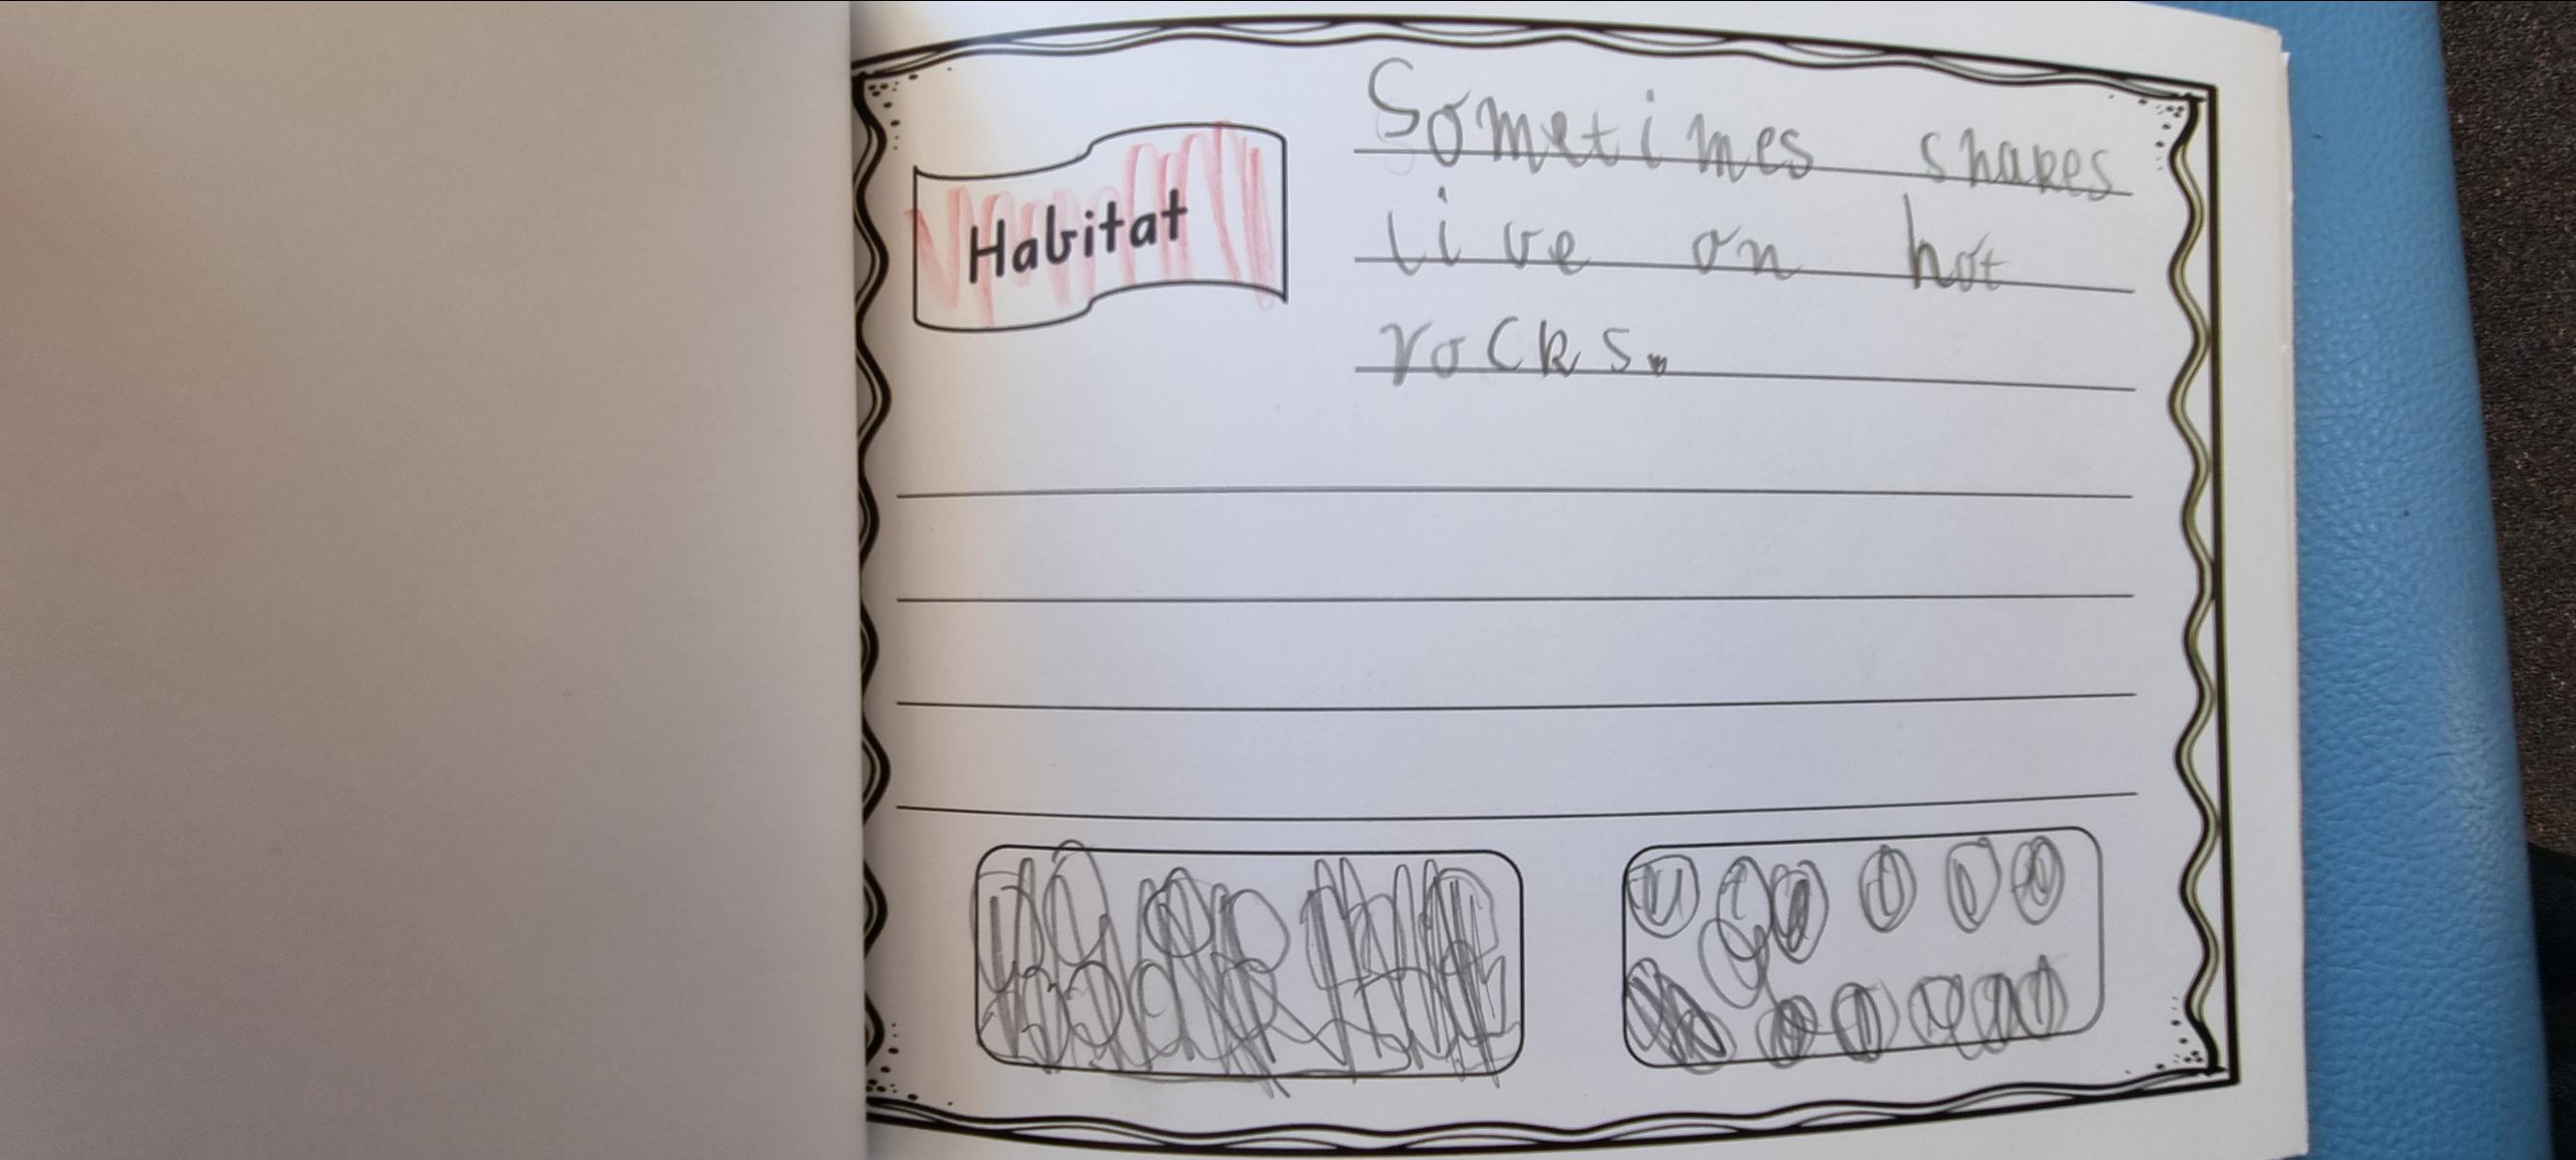 Habitat
Sometimes snakes
live on hot
rocks.